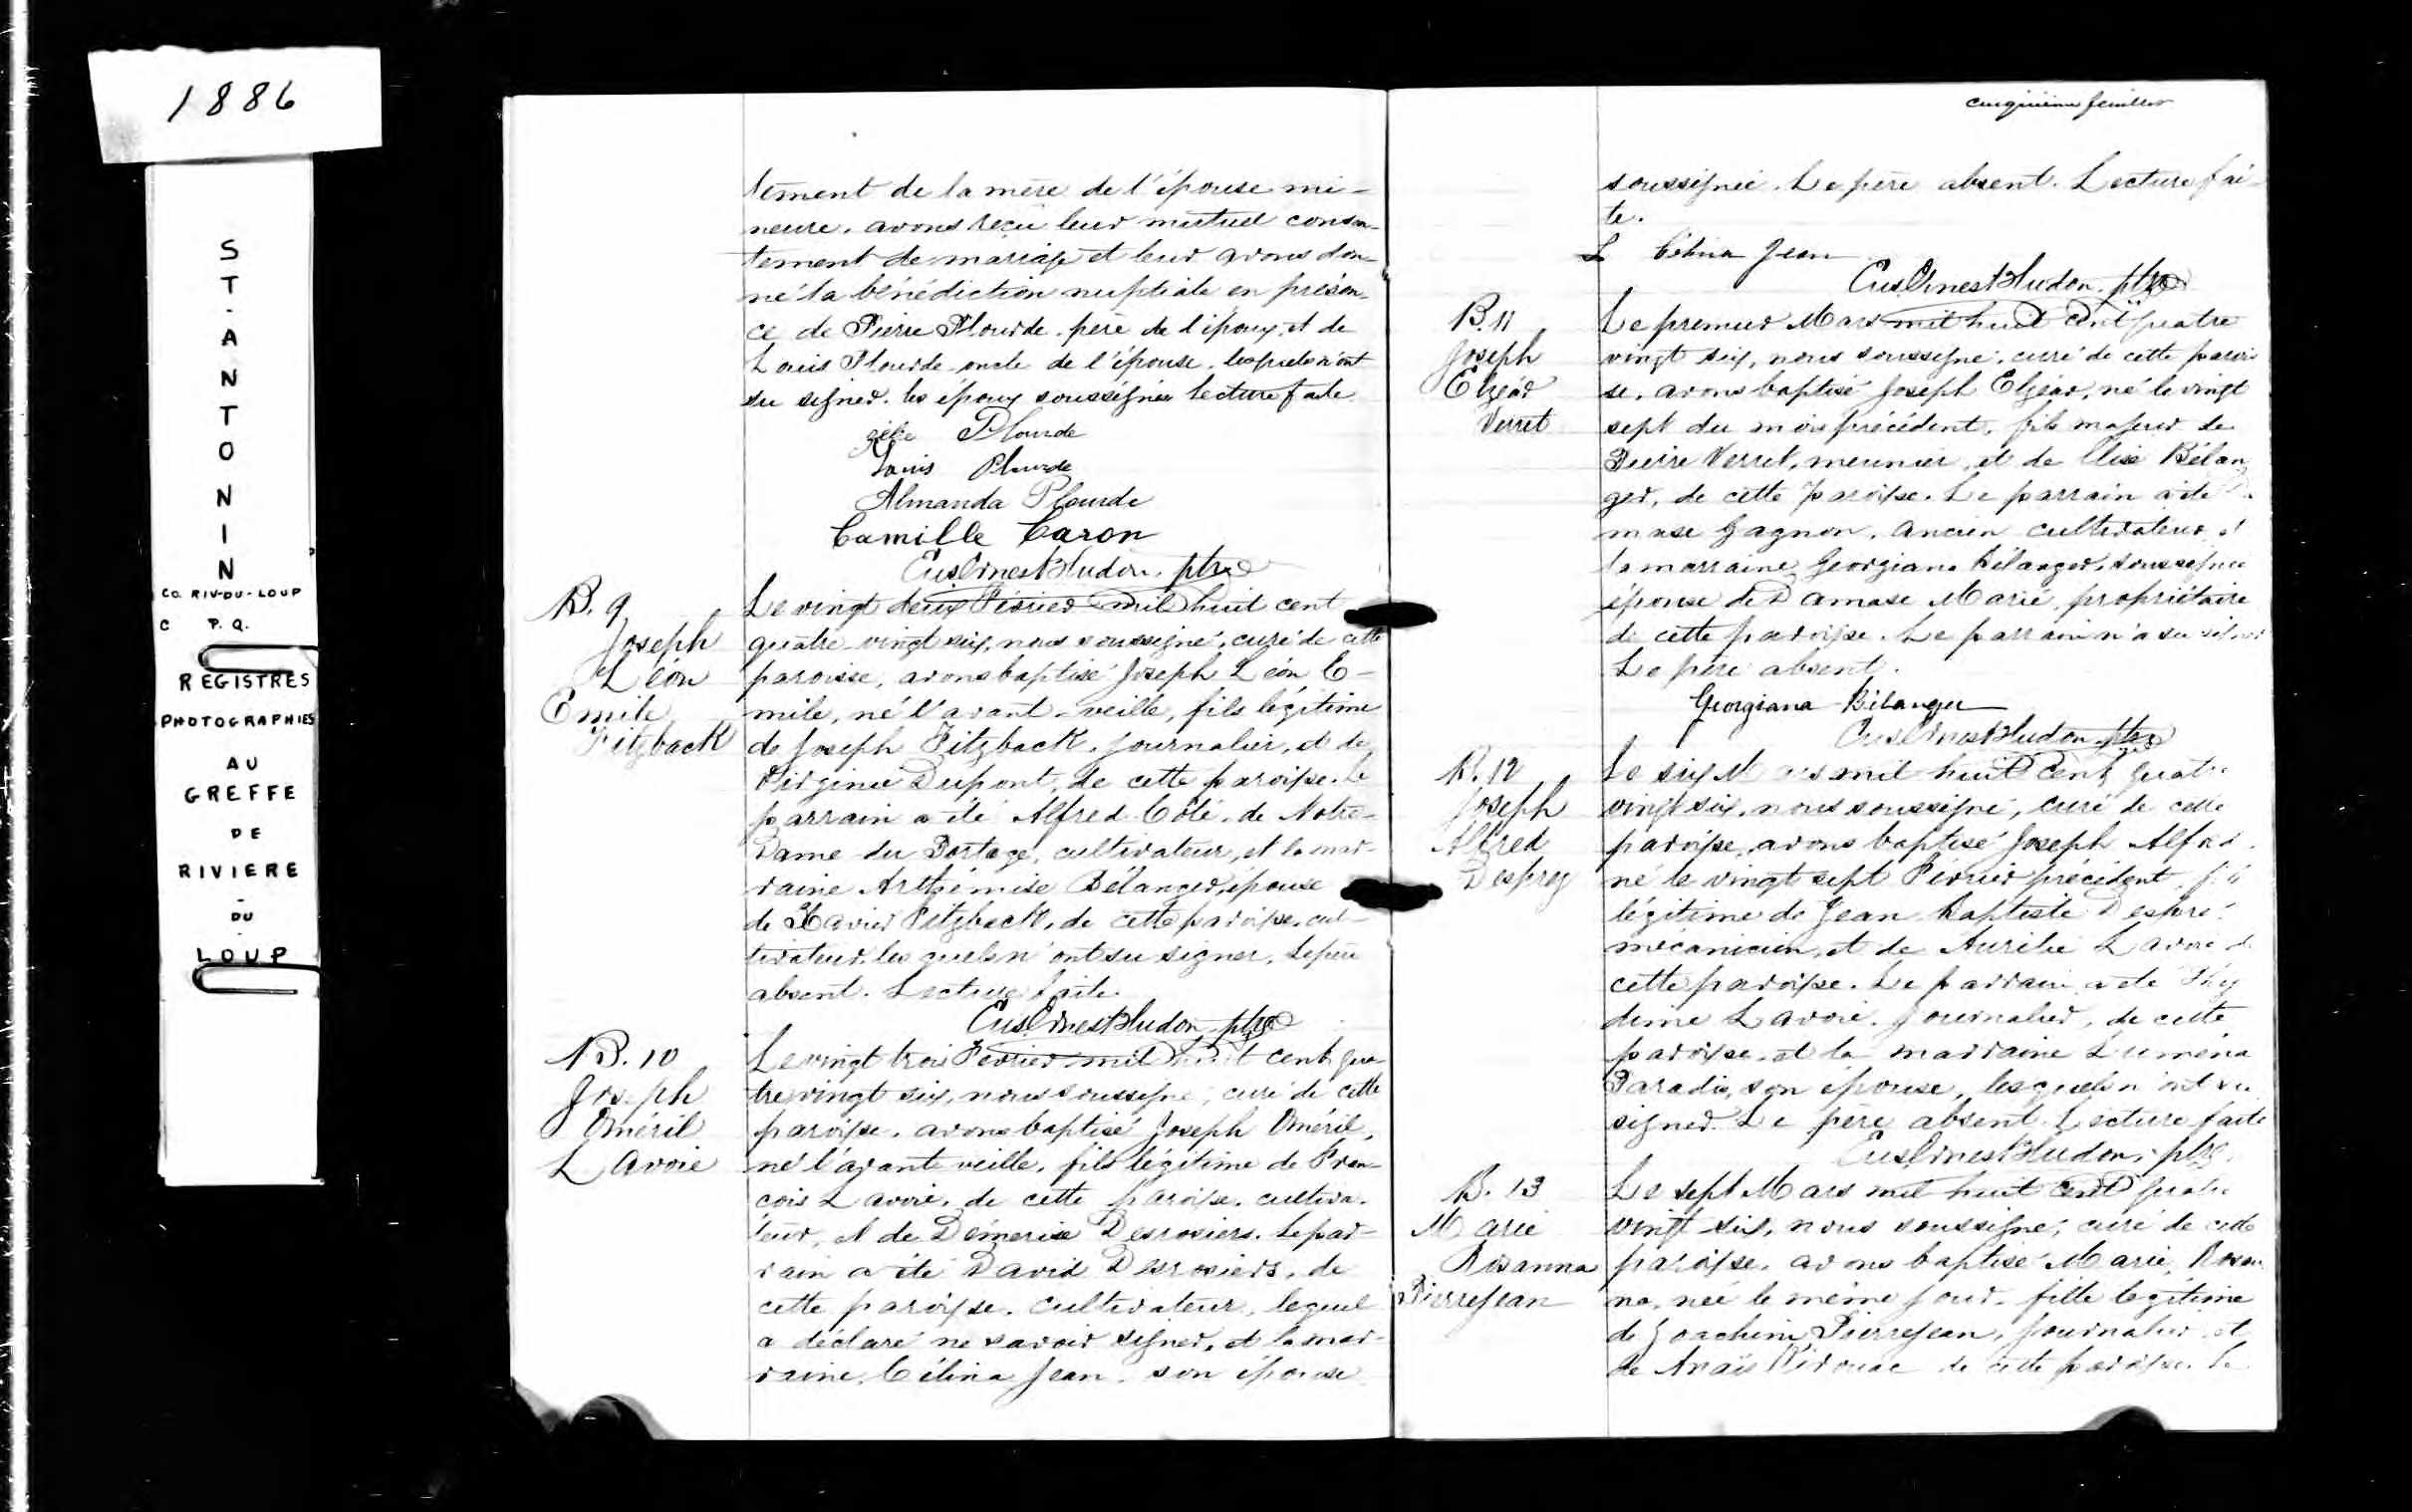 1886
ST. ANTONIN
CO. RIV-DU-LOUP
C P.Q.
REGISTRES
PHOTOGRAPHIES
AU
GREFFE
DE
RIVIERE
-
DU
-
LOUP
tement de la mère de l'épouse mi-
neure, avons reçu leur mutuel consen-
tement de mariage et leur avons don-
né la bénédiction nuptiale en présen-
ce de Pierre Plourde père de l'époux, et de
Louis Plourde oncle de l'épouse, lesquels n'ont
su signer. les époux soussignés lecture faite
Plourde
Louis Plourde
Almanda Plourde
Camille Caron
Cus Ernest Hudon, ptre
B. 9
Joseph
Léon
Emile
Fitzback
Le vingt deux Février mil huit cent
quatre-vingt six, nous soussigné, curé de cette
paroisse, avons baptisé Joseph Léon E-
mile, né l'avant-veille, fils légitime
de Joseph Fitzback, journalier, et de
Virginie Dupont, de cette paroisse. Le
parrain a été Alfred Côté, de Notre-
Dame du Portage, cultivateur, et la mar-
raine Arthémise Bélanger, épouse
de Xavier Fitzback, de cette paroisse, cul-
tivateur, lesquels n'ont su signer. Le père
absent. Lecture faite.
Cus Ernest Hudon, ptre
B. 10
Joseph
Oméril
Lavoie
Le vingt trois Février mil huit cent qua-
tre vingt six, nous soussigné, curé de cette
paroisse, avons baptisé Joseph Oméril,
né l'avant veille, fils légitime de Fran-
cois Lavoie, de cette paroisse, cultiva-
teur, et de Démerise Desrosiers. Le par-
rain a été David Desrosiers, de
cette paroisse, cultivateur, lequel
a déclaré ne savoir signer, et la mar-
raine, Célina Jean, son épouse
cinquième feuillet
soussignée. Le père absent. Lecture fai-
te.
L Célina Jean
Cus Ernest Hudon, ptre
B. 11
Joseph
Elzéar
Verret
Le premier Mars mil huit cent quatre
vingt six, nous soussigné, curé de cette parois
se, avons baptisé Joseph Elzéar, né le vingt
sept du mois précédent, fils majeur de
Pierre Verret, meunier, et de Elise Bélan
ger, de cette paroisse. Le parrain a été
mase Gagnon, ancien cultivateur, et
la marraine Georgiana Bélanger, soussignée
épouse de Damase Marié, propriétaire
de cette paroisse. Le parrain n'a su signer
Le père absent.
Georgiana Bélanger
Cus Ernest Hudon, ptre
B. 12
Joseph
Alfred
Desprey
Le six Mars mil huit cent quatre
vingt six, nous soussigné, curé de cette
paroisse, avons baptisé Joseph Alfred
né le vingt sept Février précédent, fils
légitime de Jean Baptiste Despré
mécanicien, et de Aurélie Lavoie de
cette paroisse. Le parrain a été
dime Lavoie, journalier, de cette
paroisse, et la marraine Luména
Paradis, son épouse, lesquels n'ont su
signer. Le père absent. Lecture faite
Cus Ernest Hudon, ptre
B. 13
Marie
Rosanna
PierreJean
Le sept Mars mil huit cent quatre
vingt six, nous soussigné, curé de cette
paroisse, avons baptisé Marie, Rosan
na, née le même jour, fille légitime
de Joachim PierreJean, journalier et
de Anaïs Kérouac de cette paroisse. Le